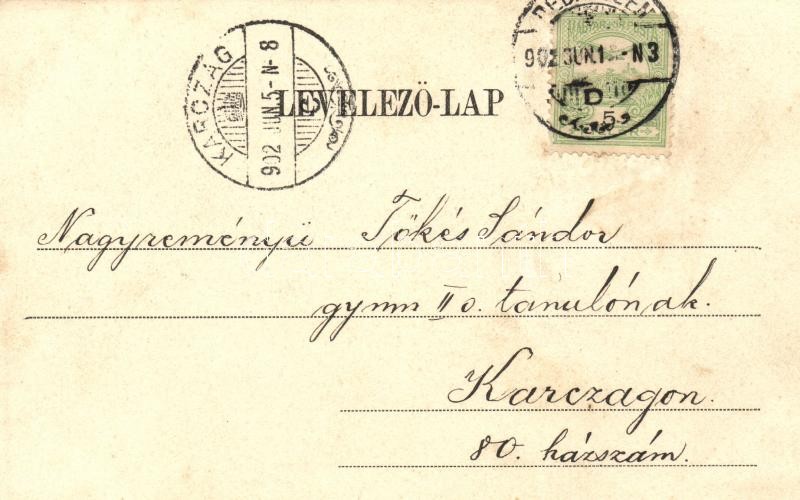 KARCZAG
902 JUN. 5 - N 8
LEVELEZŐ-LAP
902 JUN. - N3
D
5
Nagyreményű Tőkés Sándor
gymn II o. tanulónak.
Karczagon.
80. házszám.